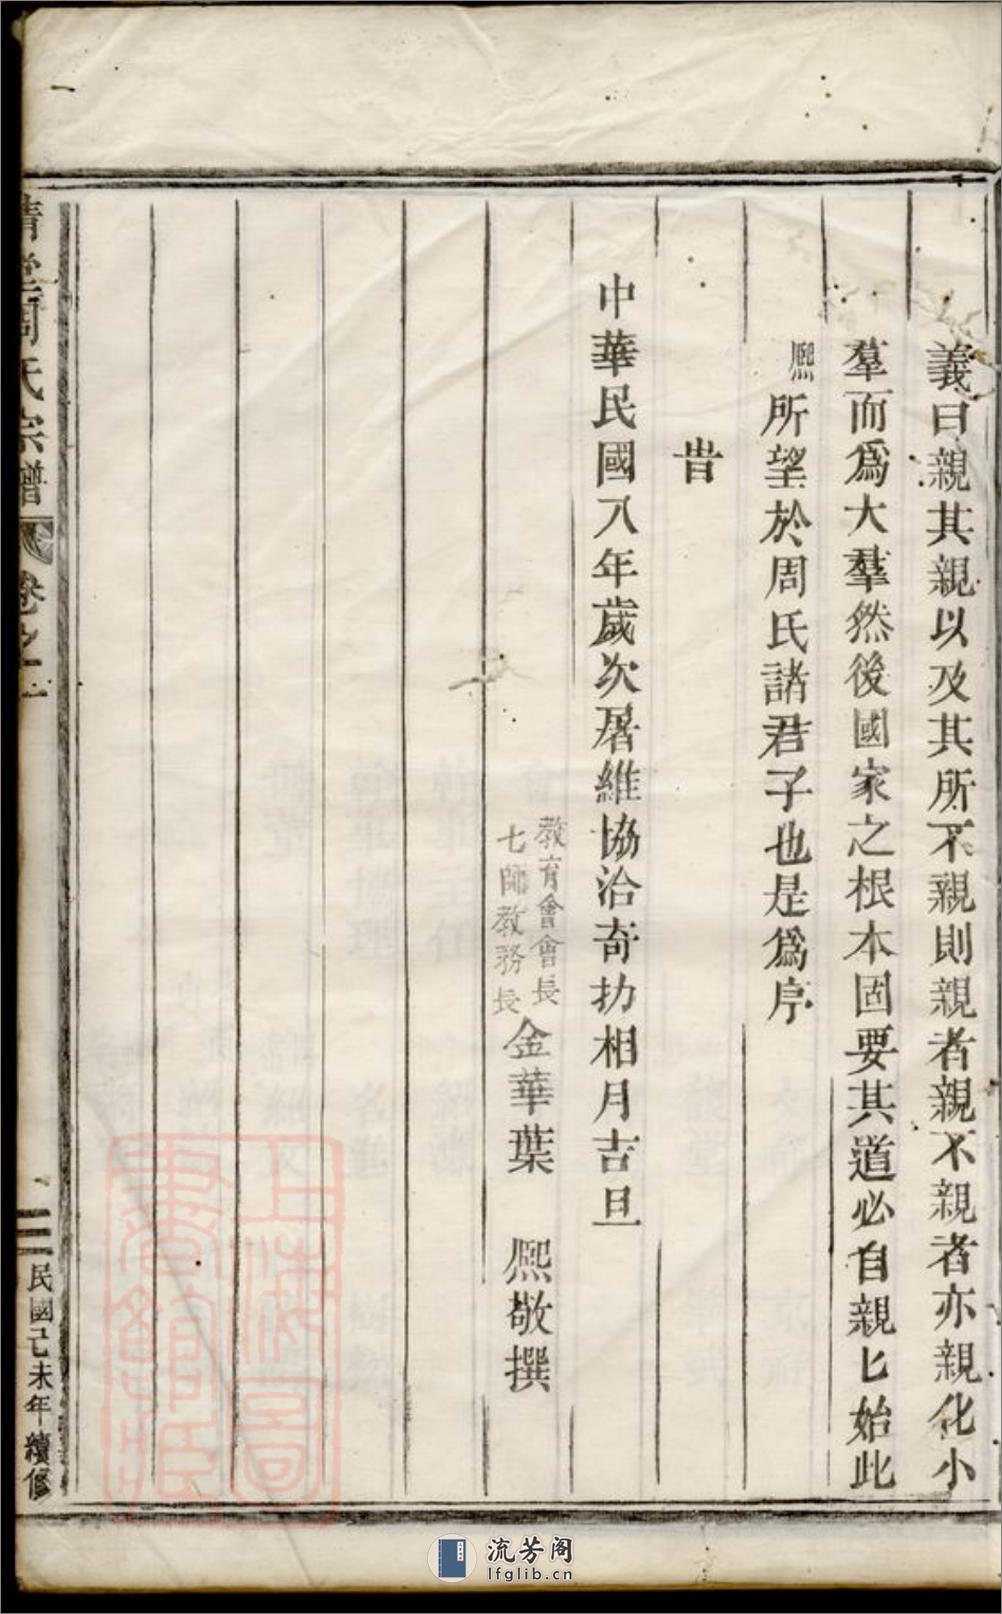 義曰親其親以及其所不親則親者親不親者亦親化小
羣而爲大羣然後國家之根本固要其道必自親匕始此
熈所望於周氏諸君子也是爲序
旹
中華民國八年歲次屠維協洽奇扐相月吉旦
教育會會長
七師教務長
金華葉 熈敬撰
周氏宗譜 卷之
三 民國己未年續修
上海圖書館藏
流芳阁
lfglib.cn